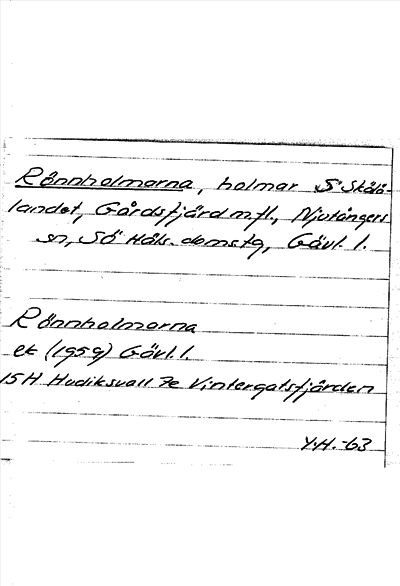 Rönnholmarna, holmar S Skålö-
landet, Gårdsfjärd m.fl., Njutångers
sn, Sö Häls. domsag, Gävl. l.
Rönnholmarna
ek (1959) Gävl. l.
15H Hudiksvall 7e Vintergatsfjärden
Y.H.-63